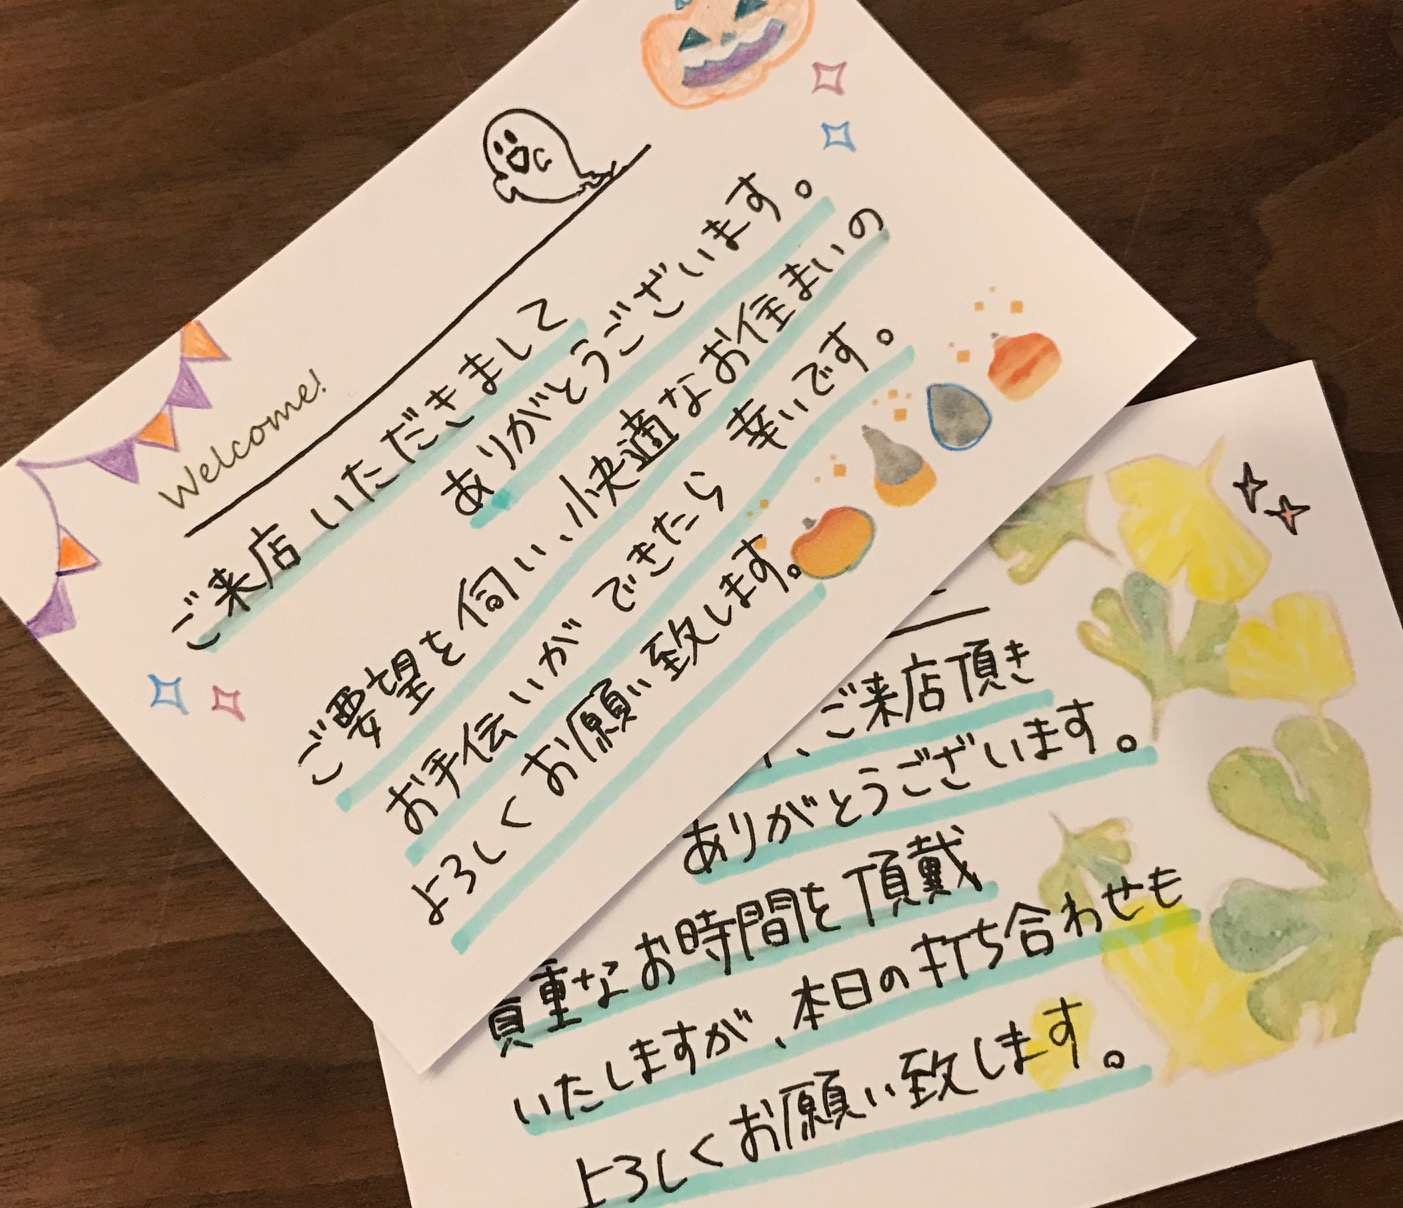 Welcome!
ご来店いただきまして
ありがとうございます。
ご要望を伺い、快適なお住まいの
お手伝いができたら 幸いです。
よろしくお願い致します。
、ご来店頂き
ありがとうございます。
貴重なお時間を頂戴
いたしますが、本日の打ち合わせも
よろしくお願い致します。